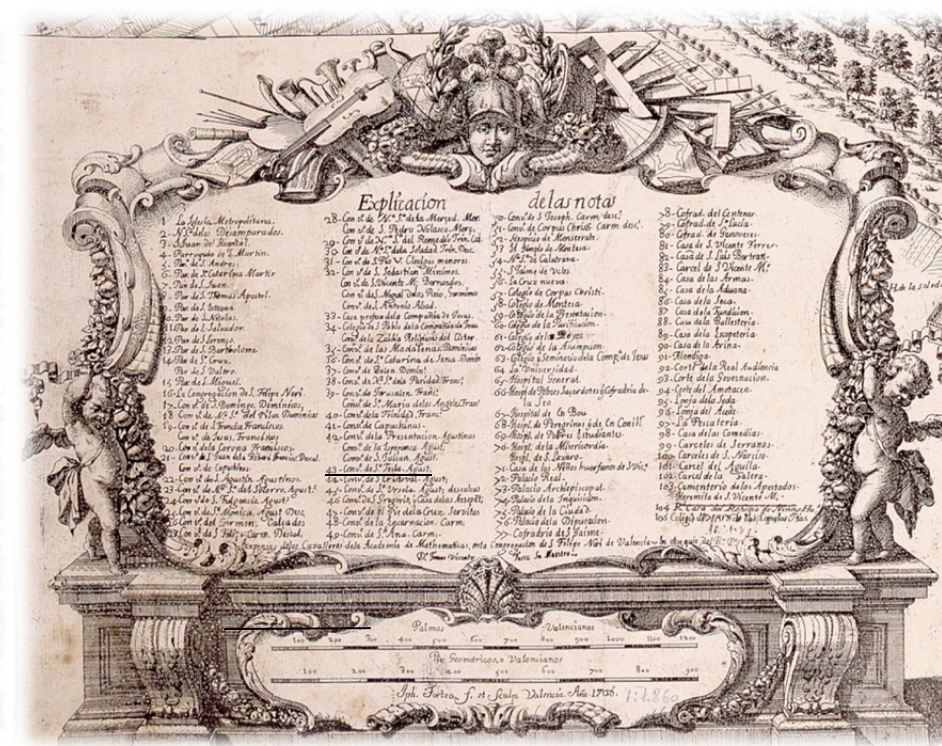 Explicacion de las notas
1 La Iglesia Metropolitana.
2 - N.S.ª de los Desamparados.
3 - S. Juan del Hospital.
4 - Parroquia de S. Martin.
5 - Par.ª de S. Andres.
6 - Par. de S.ª Catarina Martir
7 - Par. de S. Juan.
8 - Par. de S. Tomas Apostol.
9 - Par. de S. Estevan.
10 - Par. de S. Nicolas.
11 - Par. de S. Salvador.
12 - Par. de S. Lorenço.
13 - Par. de S. Bartholome.
14 - Par. de S.ª Cruz.
Par. de S. Valero.
15 Par. de S. Miguel.
16 - La Congregacion de S. Felipe Neri.
17 - Con.v de S. Domingo, Dominicos.
18 Con.v de N.ª S.ª del Pilar, Dominicos
19 - Con.v de S. Francisco Franciscos.
Con.v de Jesus, Franciscos
20 - Con.v dela Corona Franciscos.
21 - Conv.º de S. Juan dela Ribera
Con.v de Capuchinos.
22 - Con.v de S. Agustin Agustinos.
23 - Con.v de N.ª S.ª del Socorro, Agust.ˢ
24 - Conv.º de S. Fulgencio, Agust.ˢ
25 - Con.v de S.ª Monica, Agust. Desc.
26 Con.v del Carmen, Calcados
28 - Con.v de N.ª S.ª de la Merced. Mer.
Con.v de S. Pedro Nolasco Merç.
29 - Con.v de N.ª S. del Remedio Trin. Cal.
30 Con.v de N.ª S.ª dela Soledad, Trin. Desc.
31 - Con.v de S. Pio V. Clerigos menores.
32 - Con.v de S. Sebastian Minimos.
Con.v de S. Vicente M.ʳ Bernardos.
Con.v de S. Miguel
Conv.º de S. Antonio Abad.
33 - Casa profesa dela Compañia de Jesus.
34 - Colegio de S. Pablo dela Compañia de Jesus
Con.v dela Zaidia Religiosas del Cister.
35 - Con.v de las Magdalenas Dominicas
36 - Con.v de S.ª Catarina de Sena. Domin
37 - Conv.º de Belen Domin.ˢ
38 - Con.v de N.ª S.ª dela Puridad Franc.ˢ
39 - Con.v de Jerusalen Franc.ˢ
Con.v de S. Maria delos Angeles Franc.ˢ
40 - Con.v dela Trinidad, Franc.ˢ
41 - Con.v de Capuchinas.
42 - Conv.º de la Presentacion. Agustinas
Con.v dela Esperança Agust.ˢ
Con.v de S. Julian, Agust.ˢ
43 - Con.v de S.ª Tecla, Agust.ˢ
44 - Con.v de S. Cristoval - Agust.ˢ
45 - Con.v de S.ª Ursola Agust. descalças
46 Con.v de S. Gregorio
47 - Con.v de el Pie dela Cruz. Servitas
48 - Con.v de la Encarnacion - Carm.
49 - Con.v de S.ª Ana. Carm.
50 - Con.v de S. Joseph. Carm. desc.ˢ
51 - Conv. de Corpus Christi Carm. desc.ˢ
52 - Hospicio de Monserrate.
53 El Temple de Montesa.
54 - N.ª S.ª de Calatrava.
55 - S. Jaime de Veles
56 - La Cruz nueva.
57 - Colegio de Corpus Christi.
58 - Colegio de Montesa.
59 - Colegio de la Presentacion.
60 - Colegio de la Purificacion.
61 - Colegio de los Reyes
62 - Colegio de la Asumpcion
63 - Colegio y Seminario dela Comp.ª de Jesus
64 La Universidad.
65 - Hospital General.
66 - Hosp. de Pobres Sacerdotes y Cofradria de
la Seo
67 - Hospital de En Bou
68 - Hospital de Peregrinos y de En Conill
69 - Hospit. de Pobres Estudiantes.
70 - Hospit. de la Misericordia.
Hospit. de S. Lazaro.
71 - Casa de los Niños huerfanos de S. Vic.ᵉ
72 - Palacio Real.
73 - Palacio Archiepiscopal.
74 - Palacio de la Inquisicion.
75 - Palacio de la Ciudad.
76 - Palacio de la Diputacion.
77 - Cofradria de S. Jaime.
78 - Cofrad. del Centenar.
79 - Cofrad. de S.ª Lucia.
80 - Cofrad. de Genoveses.
81 - Casa de S. Vicente Ferrer.
82 - Casa de S. Luis Bertran.
83 - Carcel de S. Vicente M.ʳ
84 - Casa de las Armas.
85 - Casa de la Aduana.
86 - Casa de la Seca.
87 - Casa dela Fundicion.
88 - Casa de la Ballesteria.
89 - Casa dela Escopeteria
90 - Casa de la Arina.
91 - Almodin.
92 - Corte dela Real Audiencia
93 - Corte de la Governacion.
94 - Corte del Amotacen.
95 - Lonja dela Seda.
96 - Lonja del Aceite.
97 - La Pescateria.
98 - Casa de las Comedias.
99 - Carceles de Serranos.
100 - Carceles de S. Narciso.
101 - Carcel del Aguila.
102 - Carcel de la Galera.
103 - Cimenterio de los Apestados.
Heremita de S. Vicente M.ʳ
A expensas delos Cavalleros dela Academia de Mathematicas, en la Congregacion de S. Felipe Neri de Valencia
D.ʳ Tomas Vicente Tosca, Su Maestro
Palmos Valencianos
100 200 300 400 500 600 700 800 900 1000 1100 1200
Pies Geometricos, o Valencianos
100 200 300 400 500 600 700 800 900
Jph. Fortea f. et Sculp. Valencia. Año 1738.
1:4.860